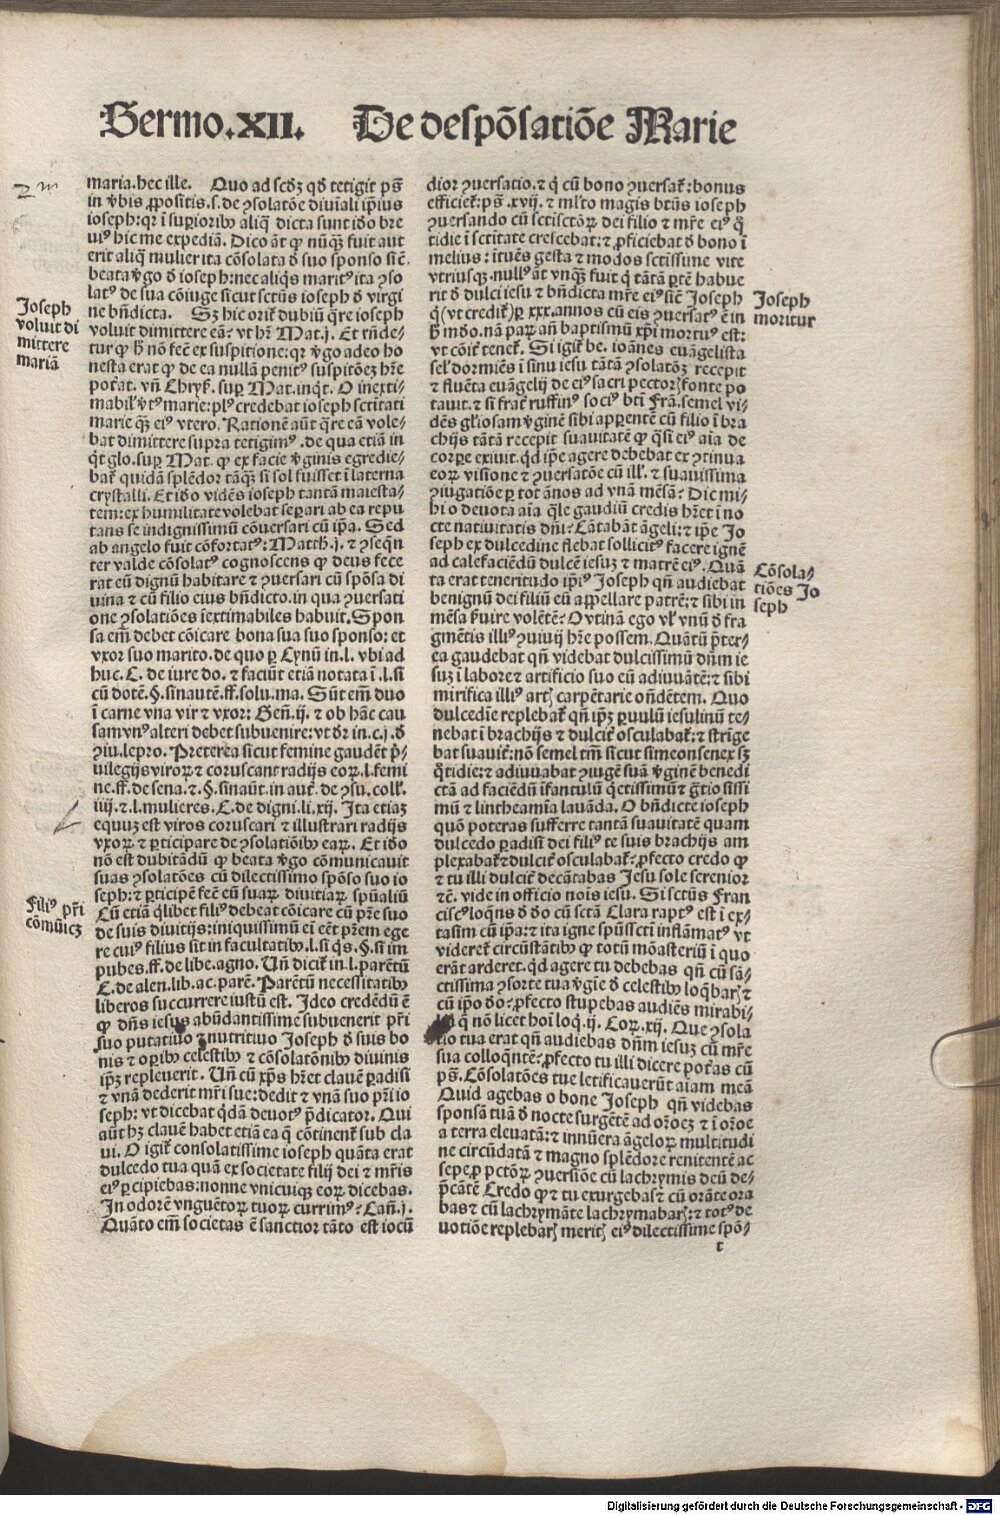 Sermo.XII. De despõsatiõe Marie
maria.hec ille. Quo ad scd̄ȝ qd̄ tetigit p̄s
in v̄bis ꝓpositis.s.de ꝯsolatōe diuīali ip̄ius
ioseph:qr ī suꝑioribꝰ aliq̄ dicta sunt iđo bre
uiꝰ hic me expediā. Dico āt ꝙ nūq̄ȝ fuit aut
erit aliq̄ mulier ita cōsolata đ suo sponso sic̄
beata v̄go đ ioseph:nec aliq̄s maritꝰ ita ꝯso
latꝰ de sua cōiuge sicut sctūs ioseph đ virgi
ne bn̄dicta. Sȝ hic orit᷑ dubiū q̄re ioseph
voluit dimittere eā: vt hr̄ Mat.j. Et rn̄de-
tur ꝙ h̄ nō fec̄ ex suspitione:qr v̄go adeo ho
nesta erat ꝙ de ea nullā penitꝰ suspitōeȝ hr̄e
poťat. vn̄ Chryſ. suꝑ Mat.inq̇t. O inexti-
mabil᷑ v̄tꝰ marie:plꝰ credebat ioseph sctītati
marie q̄ȝ eiꝰ vtero. Rationē aūt q̄re eā vole-
bat dimittere supra tetigimꝰ.de qua etiā in
q̇t glo.suꝑ Mat. ꝙ ex facie v̄ginis egredie-
bat᷑ quidā splēdor tāq̄ȝ si sol fuisset ī laterna
crystalli. Et iđo vidēs ioseph tantā maiesta-
tem:ex humilitate volebat seꝑari ab ea repu
tans se indignissimū cōuersari cū ip̄a. Sed
ab angelo fuit cōfortatꝰ:Matth.j. ⁊ ꝯseq̄n
ter valde cōsolatꝰ cognoscens ꝙ deus fece
rat eū dignū habitare ⁊ ꝯuersari cū spōsa di
uina ⁊ cū filio eius bn̄dicto.in qua ꝯuersati
one ꝯsolatiōes īextimabiles habuit. Spon
sa em̄ debet cōicare bona sua suo sponso: et
vxor suo marito.de quo ꝑ Cynū in.l. vbi ad
huc. C. de iure do. ⁊ faciūt etiā notata ī.l.si
cū dotē.§.sinautē.ff.solu.ma. Sūt em̄ duo
ī carne vna vir ⁊ vxor: Gen̄.ij. ⁊ ob hāc cau
sam vnꝰ alteri debet subuenire:vt dr̄ in.c.j.đ
ꝯiu.lepro. Preterea sicut femine gaudēt p̄-
uilegijs viroꝝ ⁊ coruscant radijs eoꝝ.l.femi
ne.ff.de sena.⁊.§.sinaūt.in aut̄.de ꝯsu.coll᷑.
iiij.⁊.l.mulieres.C.de digni.li.xij. Ita etiaȝ
equuȝ est viros coruscari ⁊ illustrari radijs
vxoꝝ ⁊ ꝑticipare de ꝯsolatiōibꝰ eaꝝ. Et iđo
nō est dubitādū ꝙ beata v̄go cōmunicauit
suas ꝯsolatōes cū dilectissimo spōso suo io
seph:⁊ ꝑticipē fec̄ eū suaꝝ diuitiaꝝ spūaliū
Cū etiā q̇libet filiꝰ debeat cōicare cū pr̄e suo
de suis diuitijs:iniquissimū ei eēt pr̄em ege
re cuiꝰ filius sit in facultatibꝰ.l.si q̄s.§.si im
pubes.ff.de libe.agno. Vn̄ dicit᷑ in.l.parētū
C.de alen.lib.ac.parē. Parētū necessitatibꝰ
liberos succurrere iustū est. Ideo credēdū ē
ꝙ dn̄s iesus abūdantissime subuenerit pr̄i
suo putatiuo ⁊ nutritiuo Joseph đ suis bo
nis ⁊ oꝑibꝰ celestibꝰ ⁊ cōsolatōnibꝰ diuinis
ip̄ȝ repleuerit. Vn̄ cū xp̄s hr̄et clauē ꝑadisi
⁊ vnā dederit mr̄i sue:dedit ⁊ vnā suo pr̄i io
seph: vt dicebat q̇dā deuotꝰ p̄dicator. Qui
aūt hȝ clauē habet etiā ea q̄ cōtinent᷑ sub cla
ui. O igit᷑ consolatissime ioseph quāta erat
dulcedo tua quā ex societate filij dei ⁊ mr̄is
eiꝰ ꝑcipiebas:nonne vnicuiqȝ eoꝝ dicebas.
In odorē vnguētoꝝ tuoꝝ currimꝰ: Can̄.j.
Quāto em̄ societas ē sanctior tāto est iocū
dior ꝯuersatio.⁊ q̇ cū bono ꝯuersat᷑:bonus
efficiet᷑:p̄s.xvij.⁊ ml̄to magis bt̄us ioseph
ꝯuersando cū sctīsctōꝝ dei filio ⁊ mr̄e eiꝰ q̄
tidie ī sctītate crescebat:⁊ ꝓficiebat đ bono ī
melius: ītuēs gesta ⁊ modos sctīssime vite
vtriusqȝ.nullꝰ āt vnq̄ȝ fuit q̇ tātā ꝑtē habue
rit đ dulci iesu ⁊ bn̄dicta mr̄e eiꝰ sic̄ Joseph
q̇(vt credit᷑)ꝑ xxx.annos cū eis ꝯuersatꝰ ē in
h̄ mđo.nā paꝝ an̄ baptismū xp̄i mortuꝰ est:
vt cōit̄ tenet᷑. Si igit᷑ be. ioānes euāgelista
sel᷑ dormiēs ī sinu iesu tātā ꝯsolatōȝ recepit
⁊ fluēta euāgelij de eiꝰ sacri pectorꝭ fonte po
tauit.⁊ si frat̄ ruffinꝰ sociꝰ bt̄i Frā.semel vi-
dēs gl̄iosam v̄ginē sibi apparentē cū filio ī bra
chijs tātā recepit suauitatē ꝙ q̄si eiꝰ aīa de
corꝑe exiuit.q̇d ip̄e agere debebat ex ꝯtinua
eoꝝ visione ⁊ ꝯuersatōe cū ill᷑.⁊ suauissima
ꝯiugatiōe ꝑ tot ānos ad vnā mēsā: Dic mi-
hi o deuota aīa q̄le gaudiū credis hr̄et ī no
cte natiuitatis dn̄i: Cātabāt āgeli:⁊ ip̄e Jo
seph ex dulcedine flebat sollicitꝰ facere ignē
ad calefaciēdū dulcē iesuȝ ⁊ matrē eiꝰ. Quā
ta erat teneritudo ip̄iꝰ Joseph qn̄ audiebat
benignū dei filiū eū appellare patrē:⁊ sibi in
mēsa ẜuire volētē: O vtinā ego vl᷑ vnū đ fra
gmētis illiꝰ ꝯuiuij hr̄e possem. Quātū p̄ter-
ea gaudebat qn̄ videbat dulcissimū dn̄m ie
suȝ ī labore ⁊ artificio suo eū adiuuātē:⁊ sibi
mirifica illiꝰ artꝭ carpētarie on̄dētem. Quo
dulcedīe replebat᷑ qn̄ ip̄ȝ ꝑuulū iesulinū te-
nebat ī brachijs ⁊ dulcit̄ osculabat᷑:⁊ strīge
bat suauit̄:nō semel tm̄ sicut simeon senex sȝ
q̄tidie:⁊ adiuuabat ꝯiugē suā v̄ginē benedi
ctā ad faciēdū īfantulū q̇etissimū ⁊ gr̄tiosissi
mū ⁊ lintheamīa lauāda. O bn̄dicte ioseph
quō poteras sufferre tantā suauitatē quam
dulcedo ꝑadisi dei filiꝰ te suis brachijs am
plexabat᷑ ⁊ dulcit̄ osculabat᷑: ꝓfecto credo ꝙ
⁊ tu illi dulcit̄ decātabas Jesu sole serenior
⁊c̄. vide in officio noīs iesu. Si sctūs Fran
ciscꝰ loq̄ns đ đo cū sctā Clara raptꝰ est ī ex-
tasim cū ip̄a:⁊ ita igne spūsscti inflāmatꝰ vt
videret᷑ circūstātibꝰ ꝙ totū mōasteriū ī quo
erāt arderet.q̇d agere tu debebas qn̄ cū sā-
ctissima ꝯsorte tua v̄gīe đ celestibꝰ loq̄barꝭ ⁊
cū ip̄o đo: ꝓfecto stupebas audiēs mirabi-
lia q̄ nō licet hoī loq̇.ij. Coꝝ.xij. Que ꝯsola
tio tua erat qn̄ audiebas dn̄m iesuȝ cū mr̄e
sua colloq̄ntē: ꝓfecto tu illi dicere poťas cū
p̄s. Cōsolatōes tue letificauerūt aīam meā
Quid agebas o bone Joseph qn̄ videbas
sponsā tuā đ nocte surgētē ad oroēȝ ⁊ ī oroē
a terra eleuatā:⁊ innūera āgeloꝝ multitudi
ne circūdatā ⁊ magno splēdore renitentē ac
sepe ꝓ pctōꝝ ꝯuersiōe cū lachrymis deū de-
p̄cātē Credo ꝙ ⁊ tu exurgebas ⁊ cū orāte ora
bas ⁊ cū lachrymāte lachrymabarꝭ:⁊ totꝰ de
uotiōe replebarꝭ meritꝭ eiꝰ dilectissime spō-
c
2ᵐ
Joseph
voluit di
mittere
mariā
Filiꝰ pr̄i
cōmūicȝ
Joseph
moritur
Cōsola-
tiōes Jo
seph
Digitalisierung gefördert durch die Deutsche Forschungsgemeinschaft - DFG